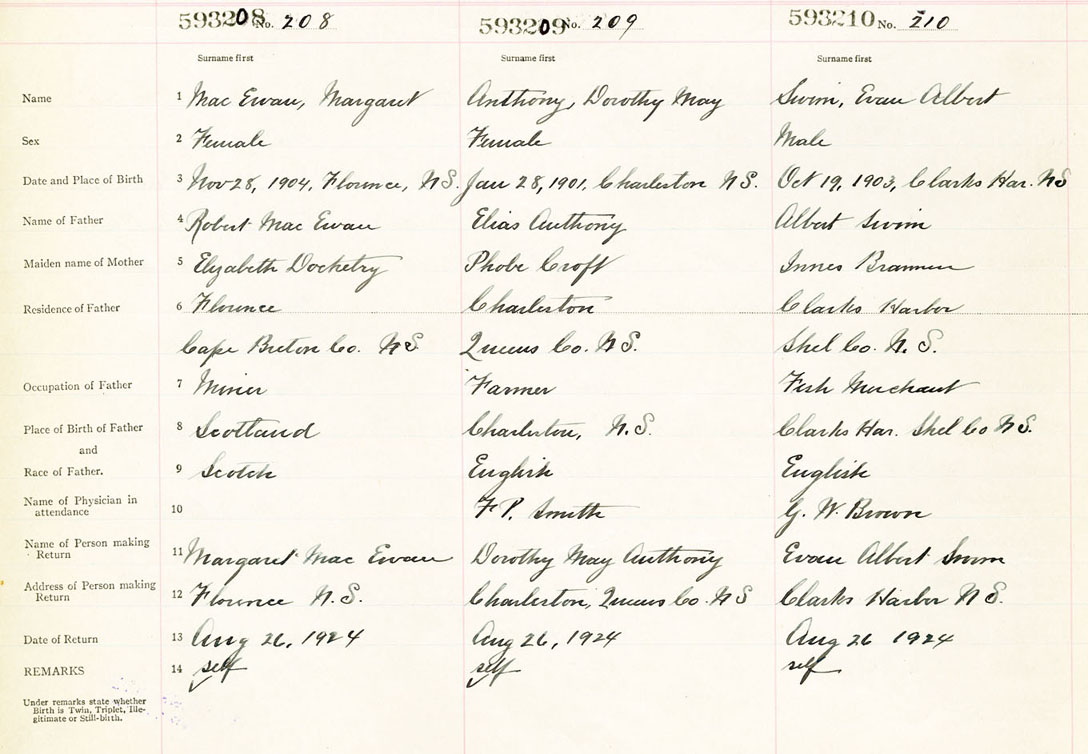 593208 No. 208 593209 No. 209 593210 No. 210
Surname first Surname first Surname first
Name 1 Mac Ewan, Margaret Anthony, Dorothy May Swim, Evan Albert
Sex 2 Female Female Male
Date and Place of Birth 3 Nov 28, 1904, Florence, N.S. Jan 28, 1901, Charleston N.S. Oct 19, 1903, Clarks Har. N.S
Name of Father 4 Robert Mac Ewan Elias Anthony Albert Swim
Maiden name of Mother 5 Elyzabeth Docketry Phobe Croft Innes
Residence of Father 6 Florence Charleston Clarks Harbor
Cape Breton Co. N.S Queens Co. N.S. Shel Co. N.S.
Occupation of Father 7 Miner Farmer Fish Merchant
Place of Birth of Father 8 Scotland Charleston, N.S. Clarks Har. Shel Co N.S.
and
Race of Father. 9 Scotch English English
Name of Physician in
attendance 10 F P. Smith G. W. Brown
Name of Person making
Return 11 Margaret Mac Ewan Dorothy May Anthony Evan Albert Swim
Address of Person making
Return 12 Florence N.S. Charleston, Queens Co. N S Clarks Harbor N S.
Date of Return 13 Aug 26, 1924 Aug 26, 1924 Aug 26 1924
REMARKS 14 self self self
Under remarks state whether
Birth is Twin, Triplet, Ille-
gitimate or Still-birth.